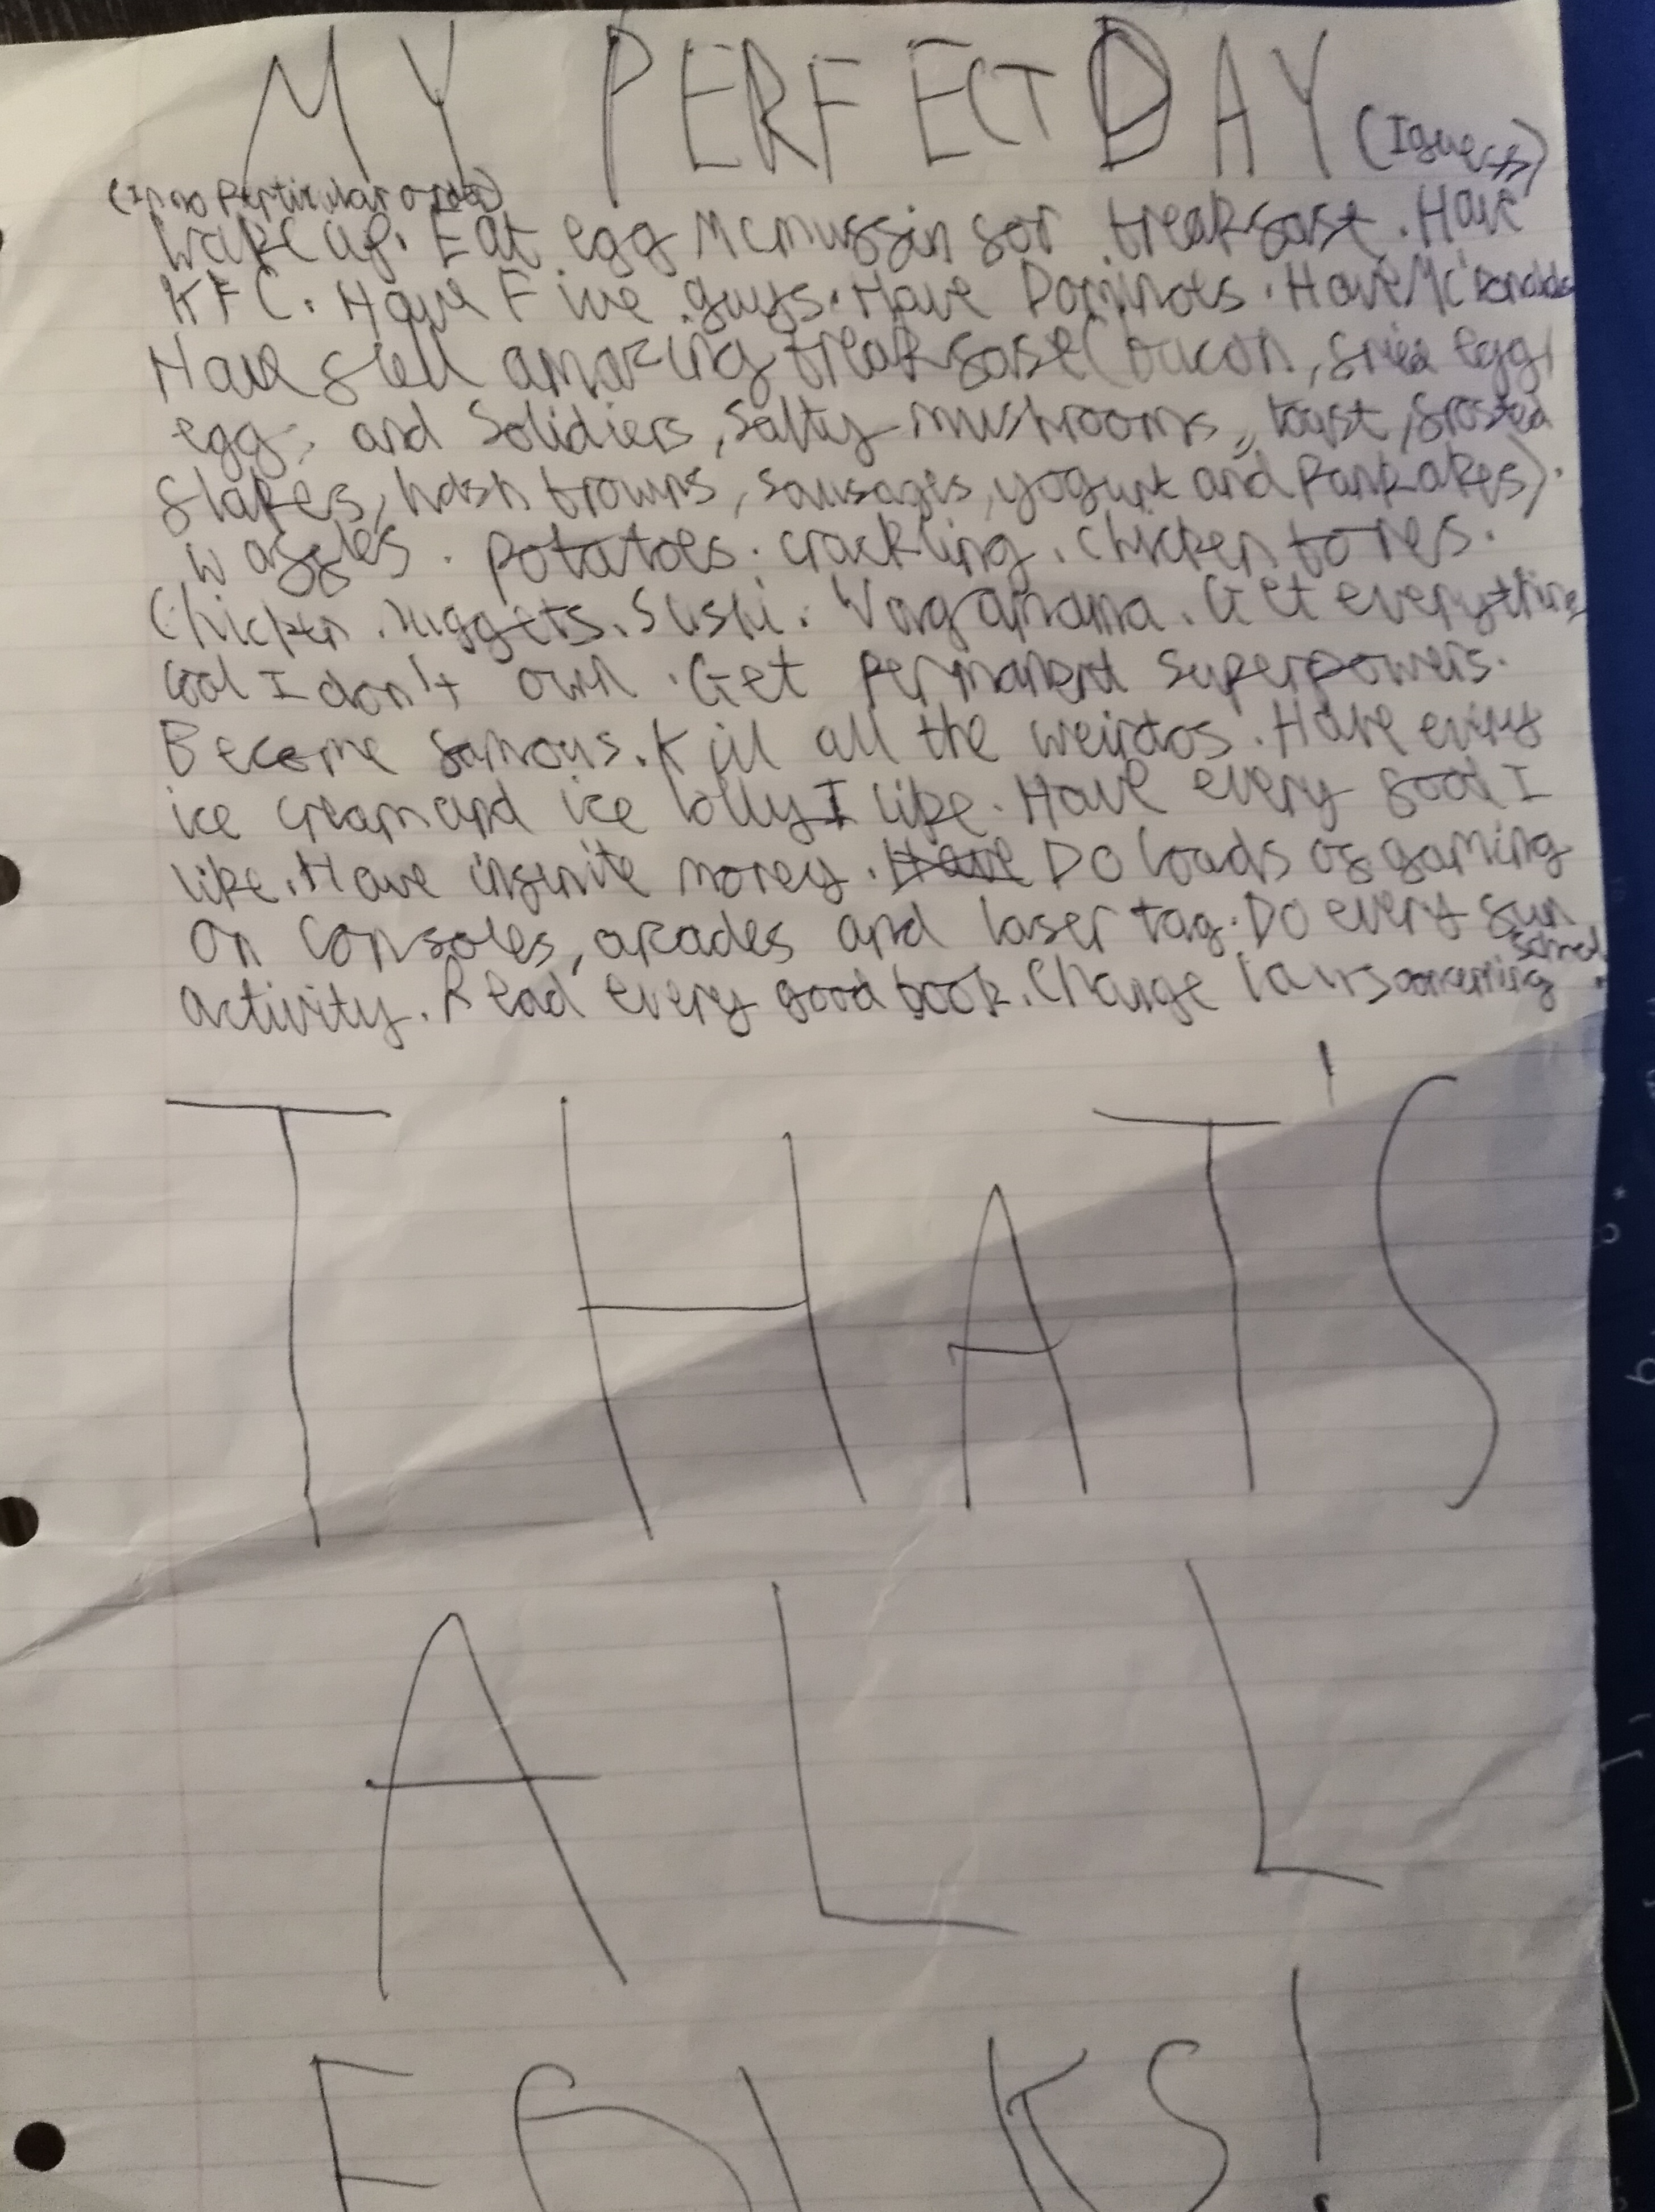 MY PERFECT DAY (I guess)
(In no perticular order)
Wake up. Eat egg Mcmuffin for breakfast. Have
KFC. Have Five guys. Have Dominoes. Have Mc'Donalds
Have full amazing breakfast (bacon, fried egg,
egg, and Solidiers, Salty mushrooms, toast, frosted
flakes, hash browns, sausages, yogurt and Pankakes).
Waffles. potatoes. crackling. Chicken bones.
Chicken nuggets. Sushi. Wagamama. Get everything
cool I don't own. Get permanent superpowers.
Become famous. Kill all the weirdos. Have every
ice cream and ice lolly I like. Have every food I
like. Have infinite money. Have Do loads of gaming
on consoles, arcades and laser tag. Do every fun
activity. Read every good book. Change laws concerning school.
THAT'S
ALL
FOLKS!